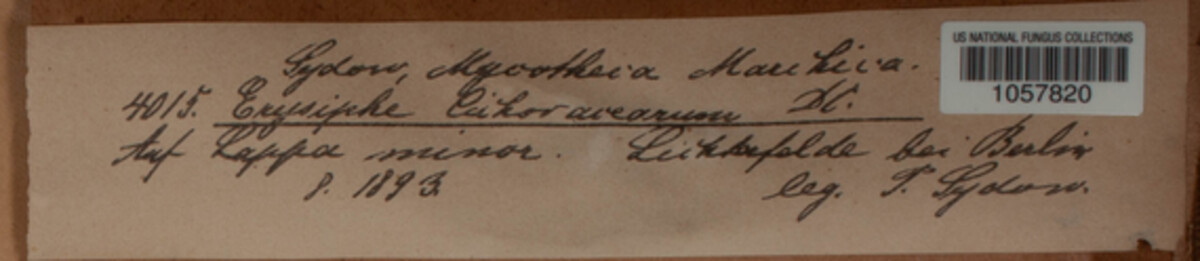 Sydow, Mycotheca Marchica.
4015. Erysiphe Cichoracearum DC.
Auf Lappa minor. Lichterfelde bei Berlin
8. 1893. leg. P. Sydow.
US NATIONAL FUNGUS COLLECTIONS
1057820